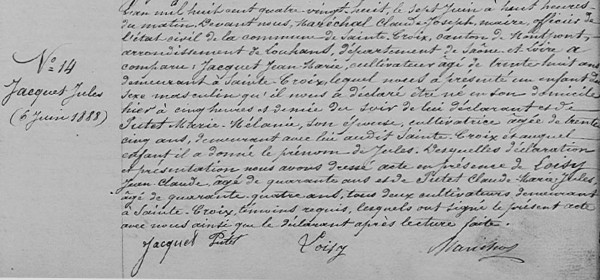 N° 14
Jacquet Jules
(6 Juin 1888)
L'an mil huit cent quatre-vingt huit, le sept Juin à huit heures
du matin. Devant nous, Maréchal Claude Joseph, maire, officier de
l'état civil de la commune de Sainte-Croix, canton de Montpont,
arrondissement de Louhans, département de Saône et Loire a
comparu: Jacquet Jean Marie, cultivateur âgé de trente huit ans
demeurant à Sainte-Croix, lequel nous a présenté un enfant du
sexe masculin qu'il nous a déclaré être né en son domicile
hier à cinq heures et demie du soir de lui déclarant et de
Putet Marie-Mélanie, son épouse, cultivatrice âgée de trente
cinq ans, demeurant avec lui audit Sainte-Croix et auquel
enfant il a donné le prénom de Jules. Desquelles déclaration
et présentation nous avons dressé acte en présence de Loisy
Jean Claude, âgé de quarante ans et de Putet Claude-Marie-Jules,
âgé de quarante-quatre ans, tous deux cultivateurs, demeurant
à Sainte-Croix, témoins requis, lesquels ont signé le présent acte
avec nous ainsi que le déclarant après lecture faite.
Jacquet Putet Loisy Maréchal